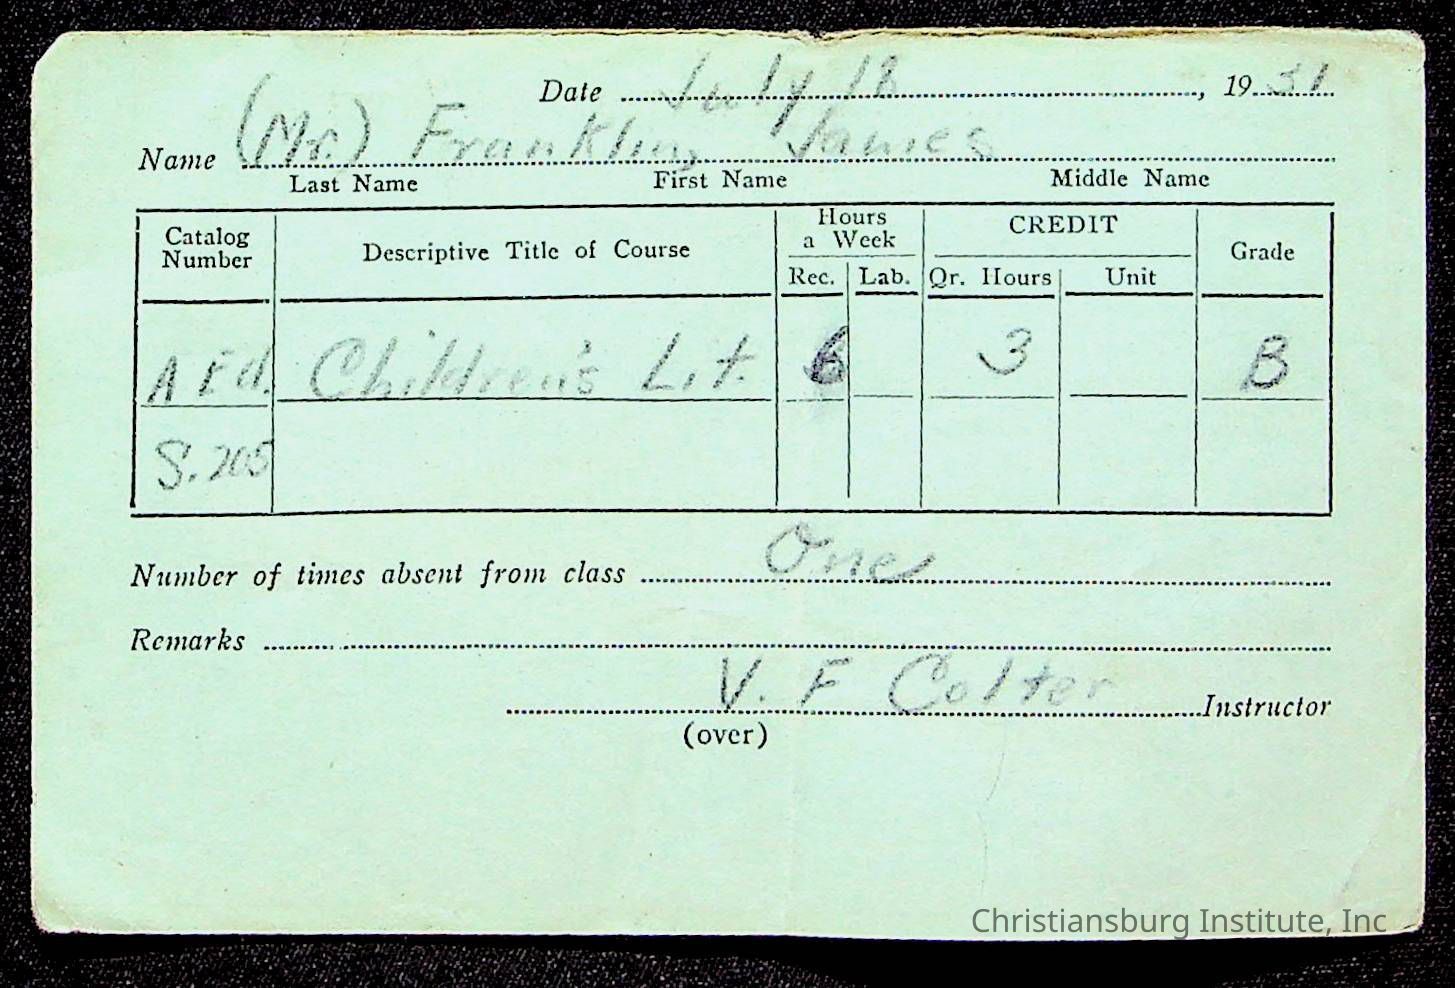 Date July 18, 1931
Name (Mr.) Franklin, James
Last Name First Name Middle Name
Catalog Number Descriptive Title of Course Hours a Week CREDIT Grade
Rec. Lab. Qr. Hours Unit
A Ed. Children's Lit. 6 3 B
S. 205
Number of times absent from class One
Remarks
V. F Colter Instructor
(over)
Christiansburg Institute, Inc